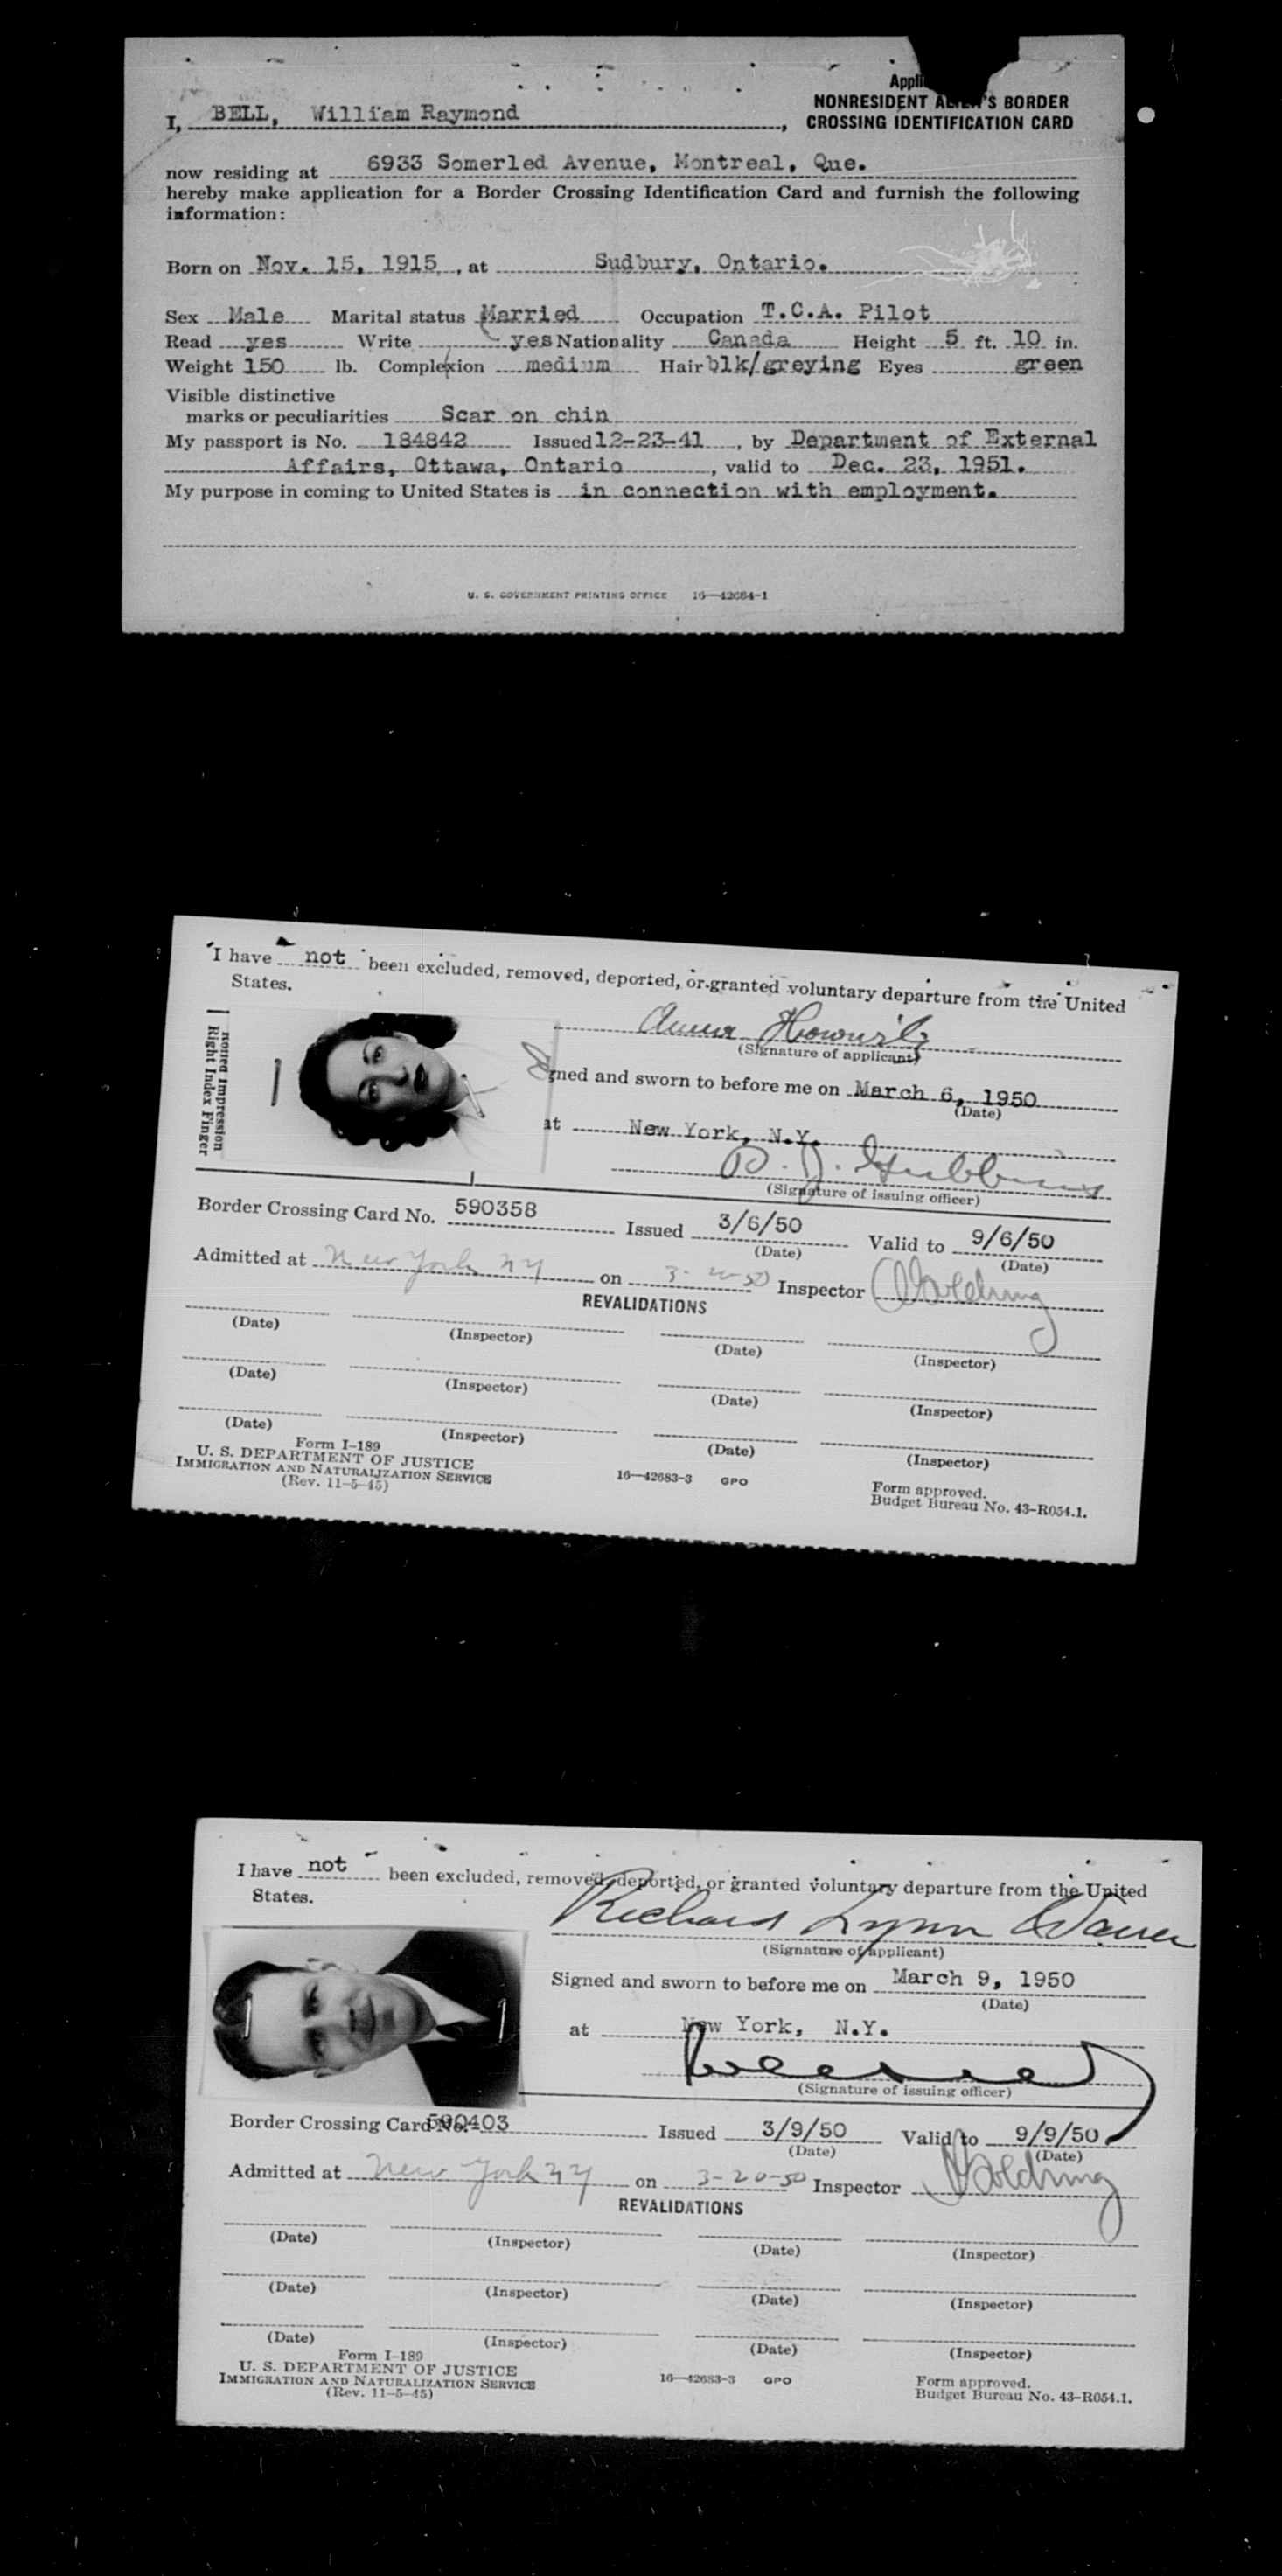 Appli
NONRESIDENT ALIEN'S BORDER
I, BELL, William Raymond, CROSSING IDENTIFICATION CARD
now residing at 6933 Somerled Avenue, Montreal, Que.
hereby make application for a Border Crossing Identification Card and furnish the following
information:
Born on Nov. 15, 1915, at Sudbury, Ontario.
Sex Male Marital status Married Occupation T.C.A. Pilot
Read yes Write yes Nationality Canada Height 5 ft. 10 in.
Weight 150 lb. Complexion medium Hair blk/greying Eyes green
Visible distinctive
marks or peculiarities Scar on chin
My passport is No. 184842 Issued 12-23-41, by Department of External
Affairs, Ottawa, Ontario, valid to Dec. 23, 1951.
My purpose in coming to United States is in connection with employment.
U. S. GOVERNMENT PRINTING OFFICE 16—42684-1
I have not been excluded, removed, deported, or granted voluntary departure from the United
States.
Rolled Impression
Right Index Finger
Anna
(Signature of applicant)
gned and sworn to before me on March 6, 1950
(Date)
at New York, N.Y.
(Signature of issuing officer)
Border Crossing Card No. 590358 Issued 3/6/50 Valid to 9/6/50
(Date) (Date)
Admitted at New York NY on 3-20-50 Inspector
REVALIDATIONS
(Date) (Inspector) (Date) (Inspector)
(Date) (Inspector) (Date) (Inspector)
(Date) (Inspector) (Date) (Inspector)
Form I-189
U. S. DEPARTMENT OF JUSTICE
IMMIGRATION AND NATURALIZATION SERVICE
(Rev. 11-5-45)
16—42683-3 GPO
Form approved.
Budget Bureau No. 43-R054.1.
I have not been excluded, removed, deported, or granted voluntary departure from the United
States.
Richard Lynn
(Signature of applicant)
Signed and sworn to before me on March 9, 1950
(Date)
at New York, N.Y.
(Signature of issuing officer)
Border Crossing Card No. 590403 Issued 3/9/50 Valid to 9/9/50
(Date) (Date)
Admitted at New York NY on 3-20-50 Inspector
REVALIDATIONS
(Date) (Inspector) (Date) (Inspector)
(Date) (Inspector) (Date) (Inspector)
(Date) (Inspector) (Date) (Inspector)
Form I-189
U. S. DEPARTMENT OF JUSTICE
IMMIGRATION AND NATURALIZATION SERVICE
(Rev. 11-5-45)
16—42683-3 GPO
Form approved.
Budget Bureau No. 43-R054.1.